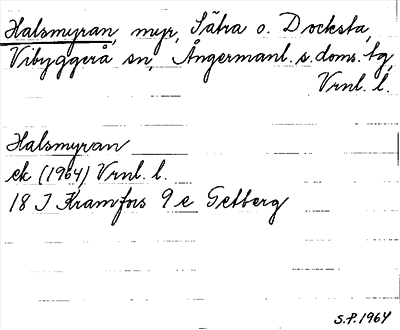 Halsmyran, myr, Sätra o. Docksta,
Vibyggerå sn, Ångermanl. s. doms. tg,
Vrnl. l.
Halsmyran
ek (1964) Vrnl. l.
18 I Kramfors 9 e Getberg
S.P. 1964